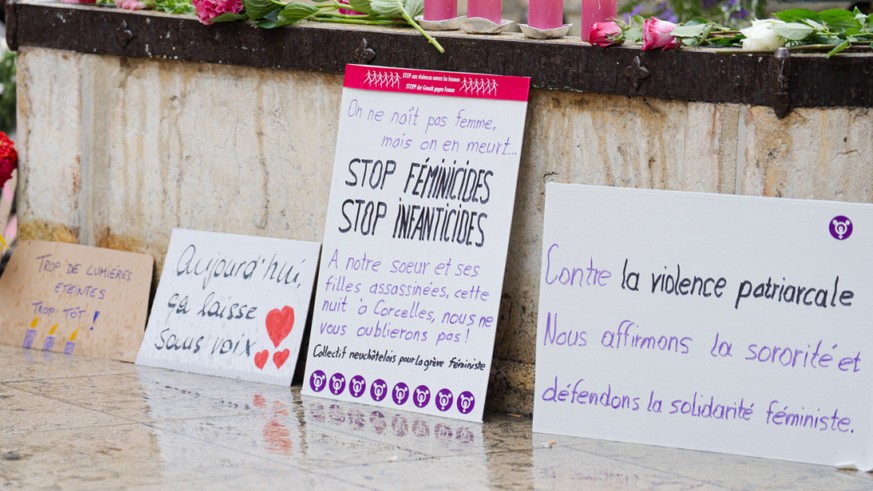 TROP DE LUMIÈRES
ETEINTES
TROP TÔT !
Aujourd'hui,
ça laisse
sans voix
STOP aux violences envers les femmes
STOPP der Gewalt gegen Frauen
On ne naît pas femme,
mais on en meurt...
STOP FÉMINICIDES
STOP INFANTICIDES
A notre soeur et ses
filles assassinées, cette
nuit à Corcelles, nous ne
vous oublierons pas !
Collectif neuchâtelois pour la grève féministe
Contre la violence patriarcale
Nous affirmons la sororité et
défendons la solidarité féministe.